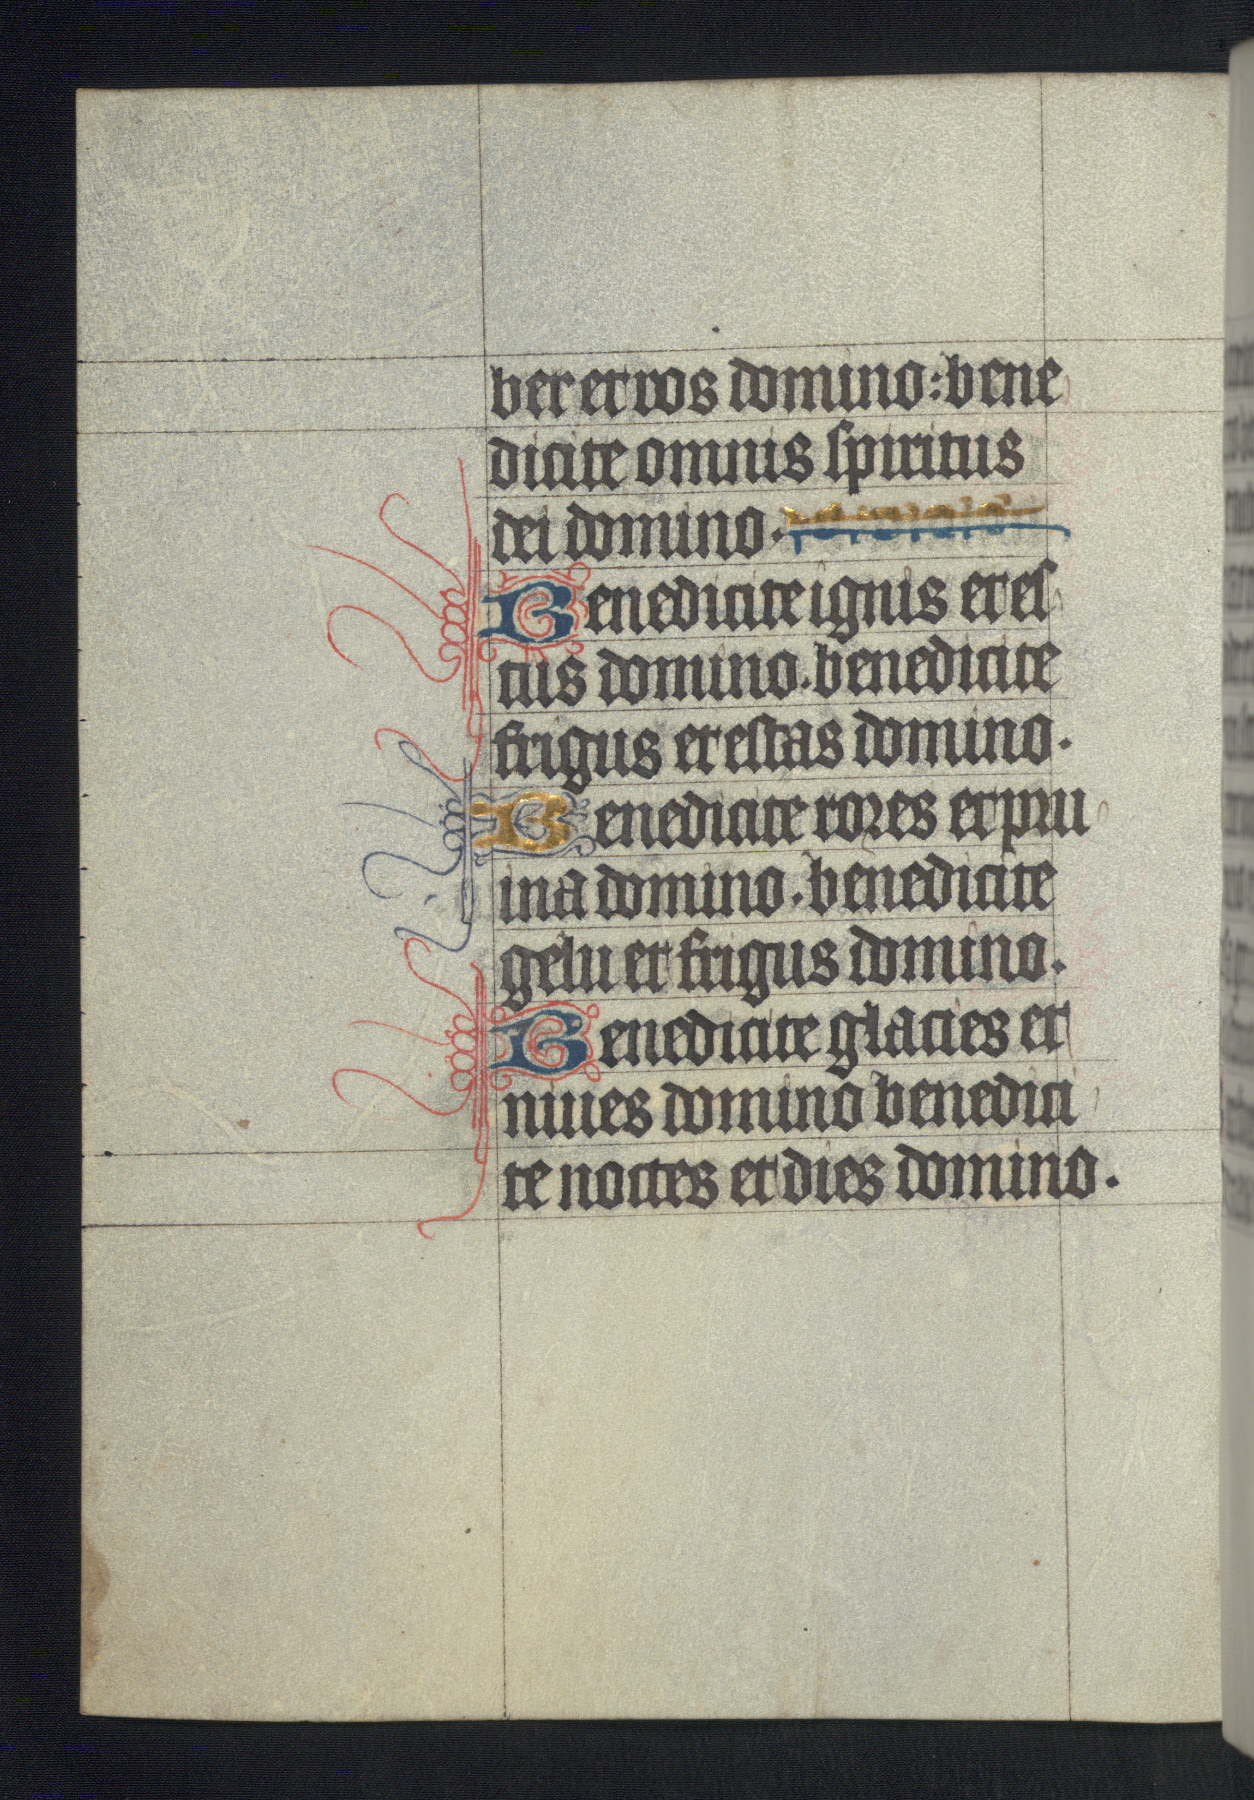 ber et ros domino: bene
dicite omnis spiritus
dei domino.
Benedicite ignis et es
tus domino. benedicite
frigus et estas domino.
Benedicite rores et pru
ina domino. benedicite
gelu et frigus domino.
Benedicite glacies et
niues domino benedici
te noctes et dies domino.